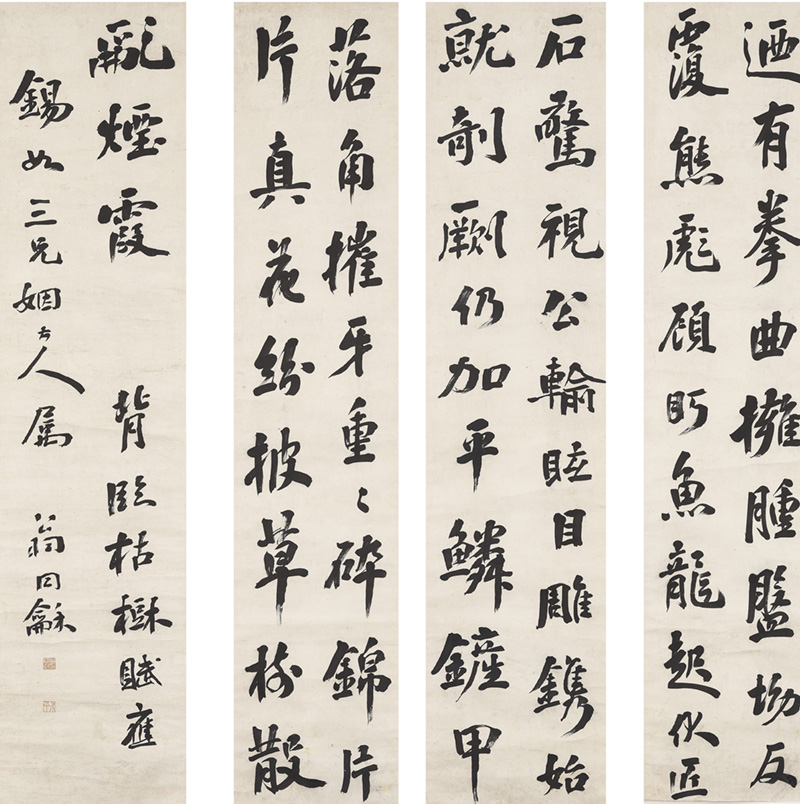 迺有拳曲擁腫盤坳反
覆熊彪顧盼魚龍起伏匠
石驚視公輸眩目雕鐫始
就剞劂仍加平鱗鏟甲
落角摧牙重〻碎錦片
片真花紛披草樹散
亂煙霞　背臨枯樹賦應
錫如三兄姻大人屬　翁同龢